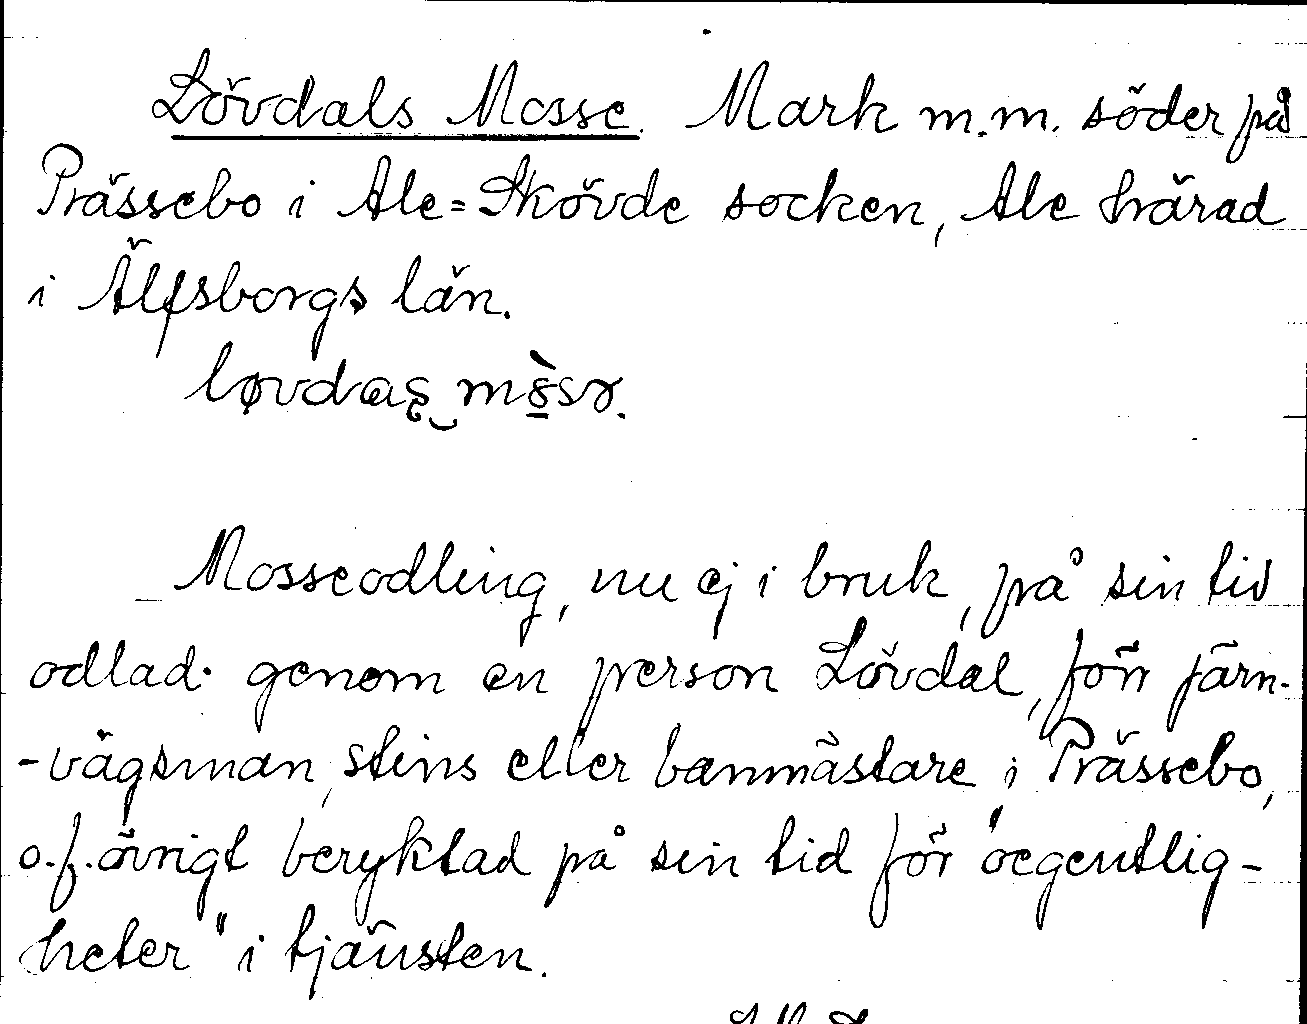 Lövdals Mosse. Mark m.m. söder på
Prässebo i Ale=Skövde socken, Ale härad
i Älfsborgs län.
Mosseodling, nu ej i bruk, på sin tid
odlad genom en person Lövdal, förr järn-
-vägsman, stins eller banmästare i Prässebo,
o.f. övrigt beryktad på sin tid för "oegentlig-
heter" i tjänsten.